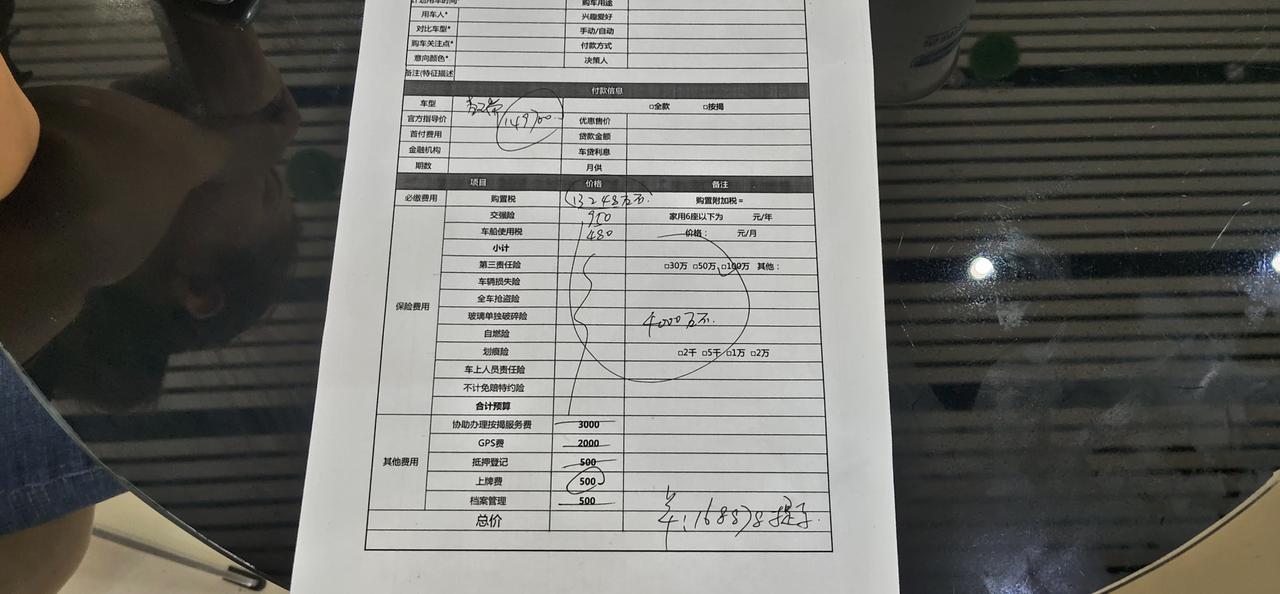 购车用途
用车人* 兴趣爱好
对比车型* 手动/自动
购车关注点* 付款方式
意向颜色* 决策人
备注(特征描述
付款信息
车型 □全款 □按揭
官方指导价 149700 优惠售价
首付费用 贷款金额
金融机构 车贷利息
期数 月供
项目 价格 备注
必缴费用 购置税 13248 购置附加税 =
保险费用
交强险 950 家用6座以下为 元/年
车船使用税 480 价格： 元/月
小计
第三责任险 □30万 □50万 □100万 其他：
车辆损失险
全车抢盗险
玻璃单独破碎险 4000
自燃险
划痕险 □2千 □5千 □1万 □2万
车上人员责任险
不计免赔特约险
合计预算
其他费用
协助办理按揭服务费 3000
GPS费 2000
抵押登记 500
上牌费 500
档案管理 500
总价 168878